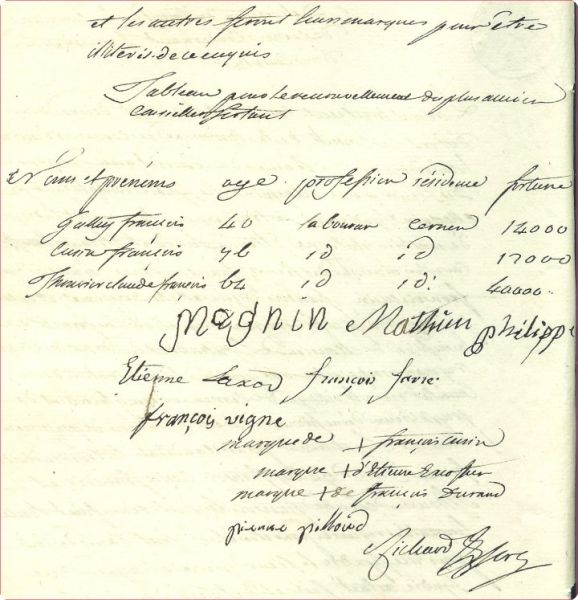 et les autres feront leurs marques pour être
illiterés de ce enquis
Tableau pour le renouvellement du plus ancien
conseiller sortant
Noms et prénoms age profession résidence fortune
françois 40 laboureur cernex 14000
Cusin françois 76 id id 17000
Thouvier claude françois 64 id id 40000
Magnin Mathieu philippe
Etienne Saxod françois favre
françois vigne
marque de + françois Cusin
marque + d'Etienne
marque + de françois Durand
pierre pilloud
Richard